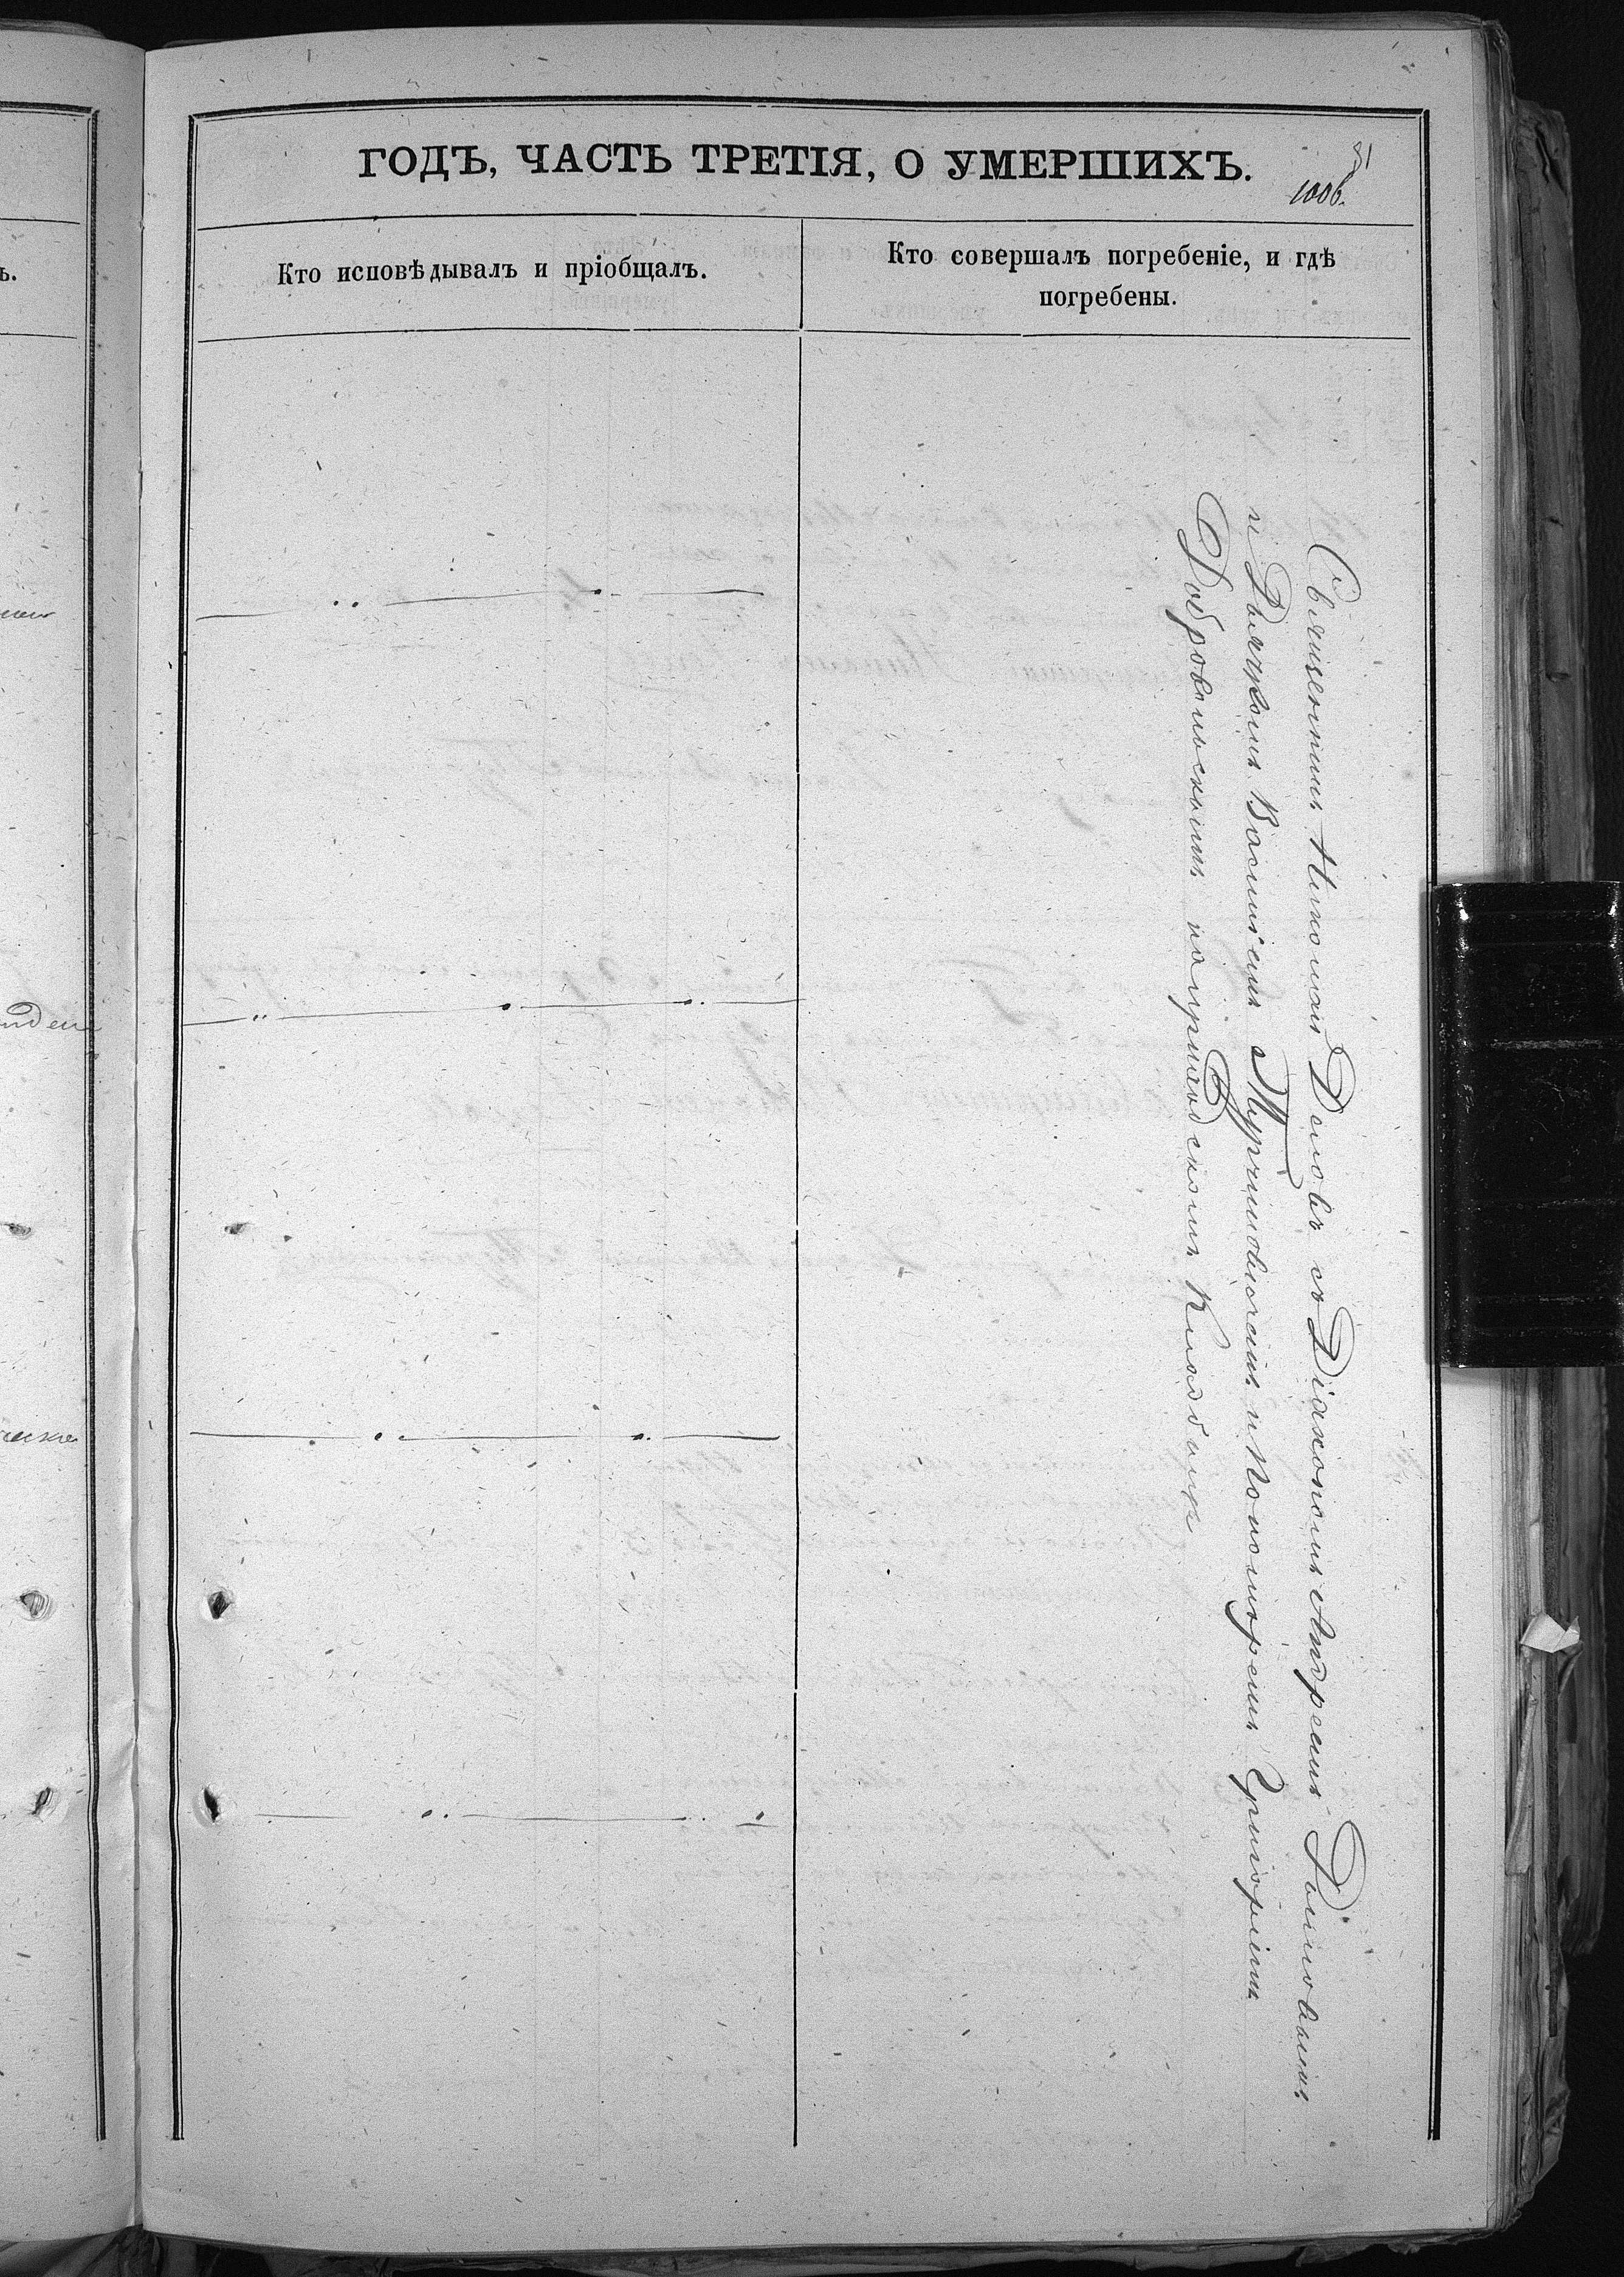 ГОДЪ, ЧАСТЬ ТРЕТІЯ, О УМЕРШИХЪ.
31
1006.
Кто исповѣдывалъ и пріобщалъ.
Кто совершалъ погребеніе, и гдѣ
погребены.
Священникъ Николай съ Діакономъ Андреемъ
и Дьячкомъ Василіемъ и Пономаремъ Григоріемъ
Добровольскимъ на приходскомъ Кладбищѣ